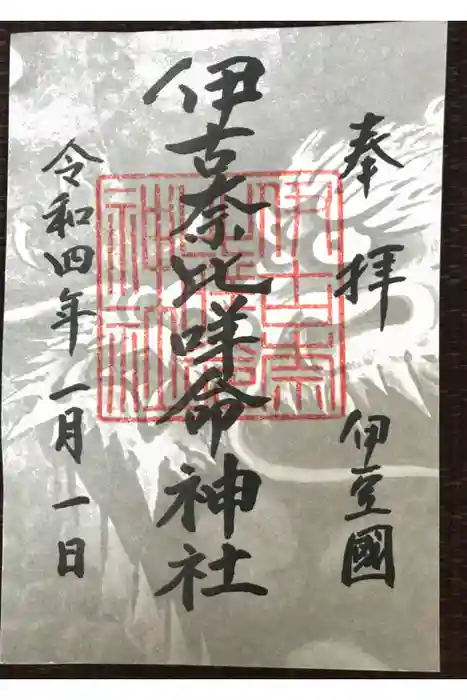 奉拝 伊豆國
伊古奈比咩命神社
令和四年一月一日
伊古奈
比咩命
神社